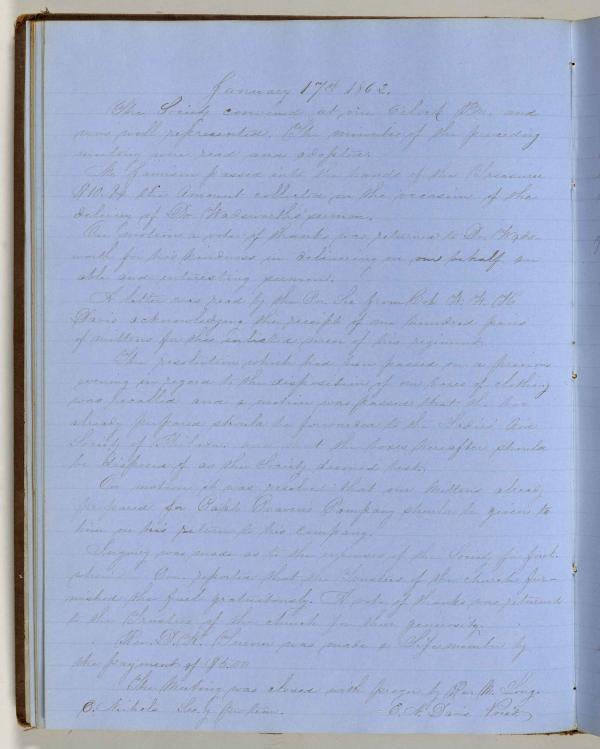 January 17th 1862.
The Society convened at one O'clock P.M. and
was well represented. The minutes of the preceding
meeting were read and adopted.
Mr Jamison passed into the hands of the Treasurer
$10.24 the amount collected on the occasion of the
delivery of Dr. Wadsworth's sermon.
On motion a vote of thanks was returned to Dr. Wads-
worth for his kindness in delivering on our behalf an
able and interesting sermon.
A letter was read by the Cor Sec from Col. W. W. H.
Davis acknowledging the receipt of one hundred pairs
of mittens for the enlisted men of his regiment.
The resolution which had been passed on a previous
evening in regard to the disposition of our boxes of clothing
was recalled and a motion was passed that the box
already prepared should be forwarded to the Ladies' Aid
Society of Philada. and that the boxes hereafter should
be disposed of as the Society deemed best.
On motion it was resolved that our mittens already
prepared for Capt. Beavers Company should be given to
him on his return to his company.
Inquiry was made as to the expenses of the Society for fuel.
when Com. reported that the Trustees of the church fur-
nished the fuel gratuitously. A vote of thanks was returned
to the Trustees of the church for their generosity.
Rev. D. K. Turner was made a Life member by
the payment of $5.00
The Meeting was closed with prayer by Rev Mr. Long.
C. Nichols Sec'y pro tem. E. N. Davis Prest.